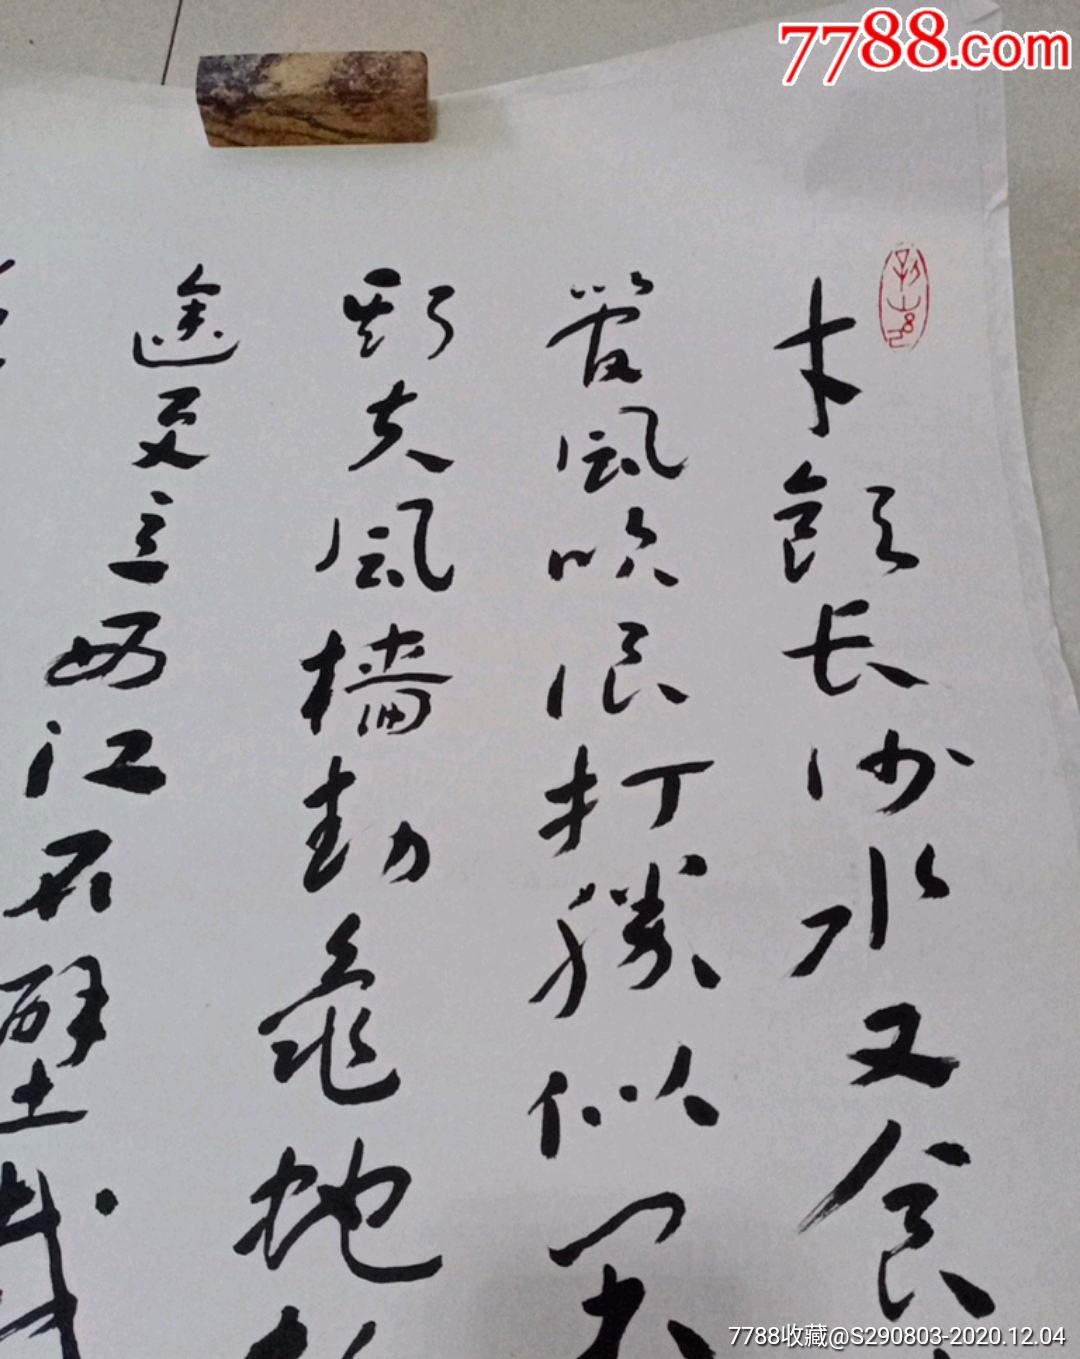 7788.com
才飲长沙水又食
管风吹浪打勝似闲
斯夫风樯动龟蛇
途更立西江石壁截
7788收藏@S290803-2020.12.04